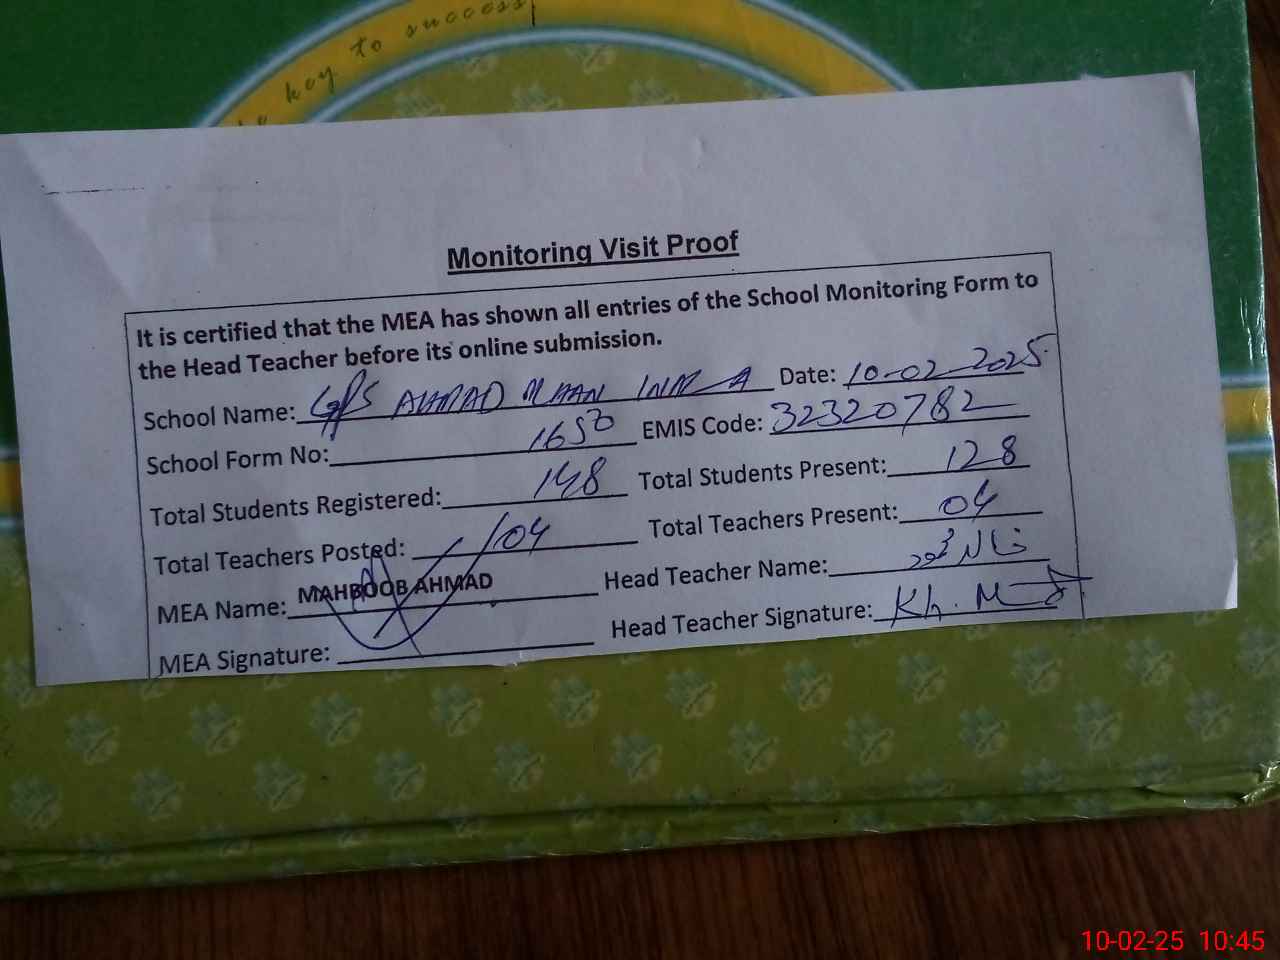 key to success
Monitoring Visit Proof
It is certified that the MEA has shown all entries of the School Monitoring Form to
the Head Teacher before its online submission.
School Name: GPS AHMAD Date: 10-02-2025
School Form No: 1650 EMIS Code: 32320782
Total Students Registered: 148 Total Students Present: 128
Total Teachers Posted: 04 Total Teachers Present: 04
MEA Name: MAHBOOB AHMAD Head Teacher Name: خالد محمود
MEA Signature: Head Teacher Signature: Kh.
10-02-25 10:45